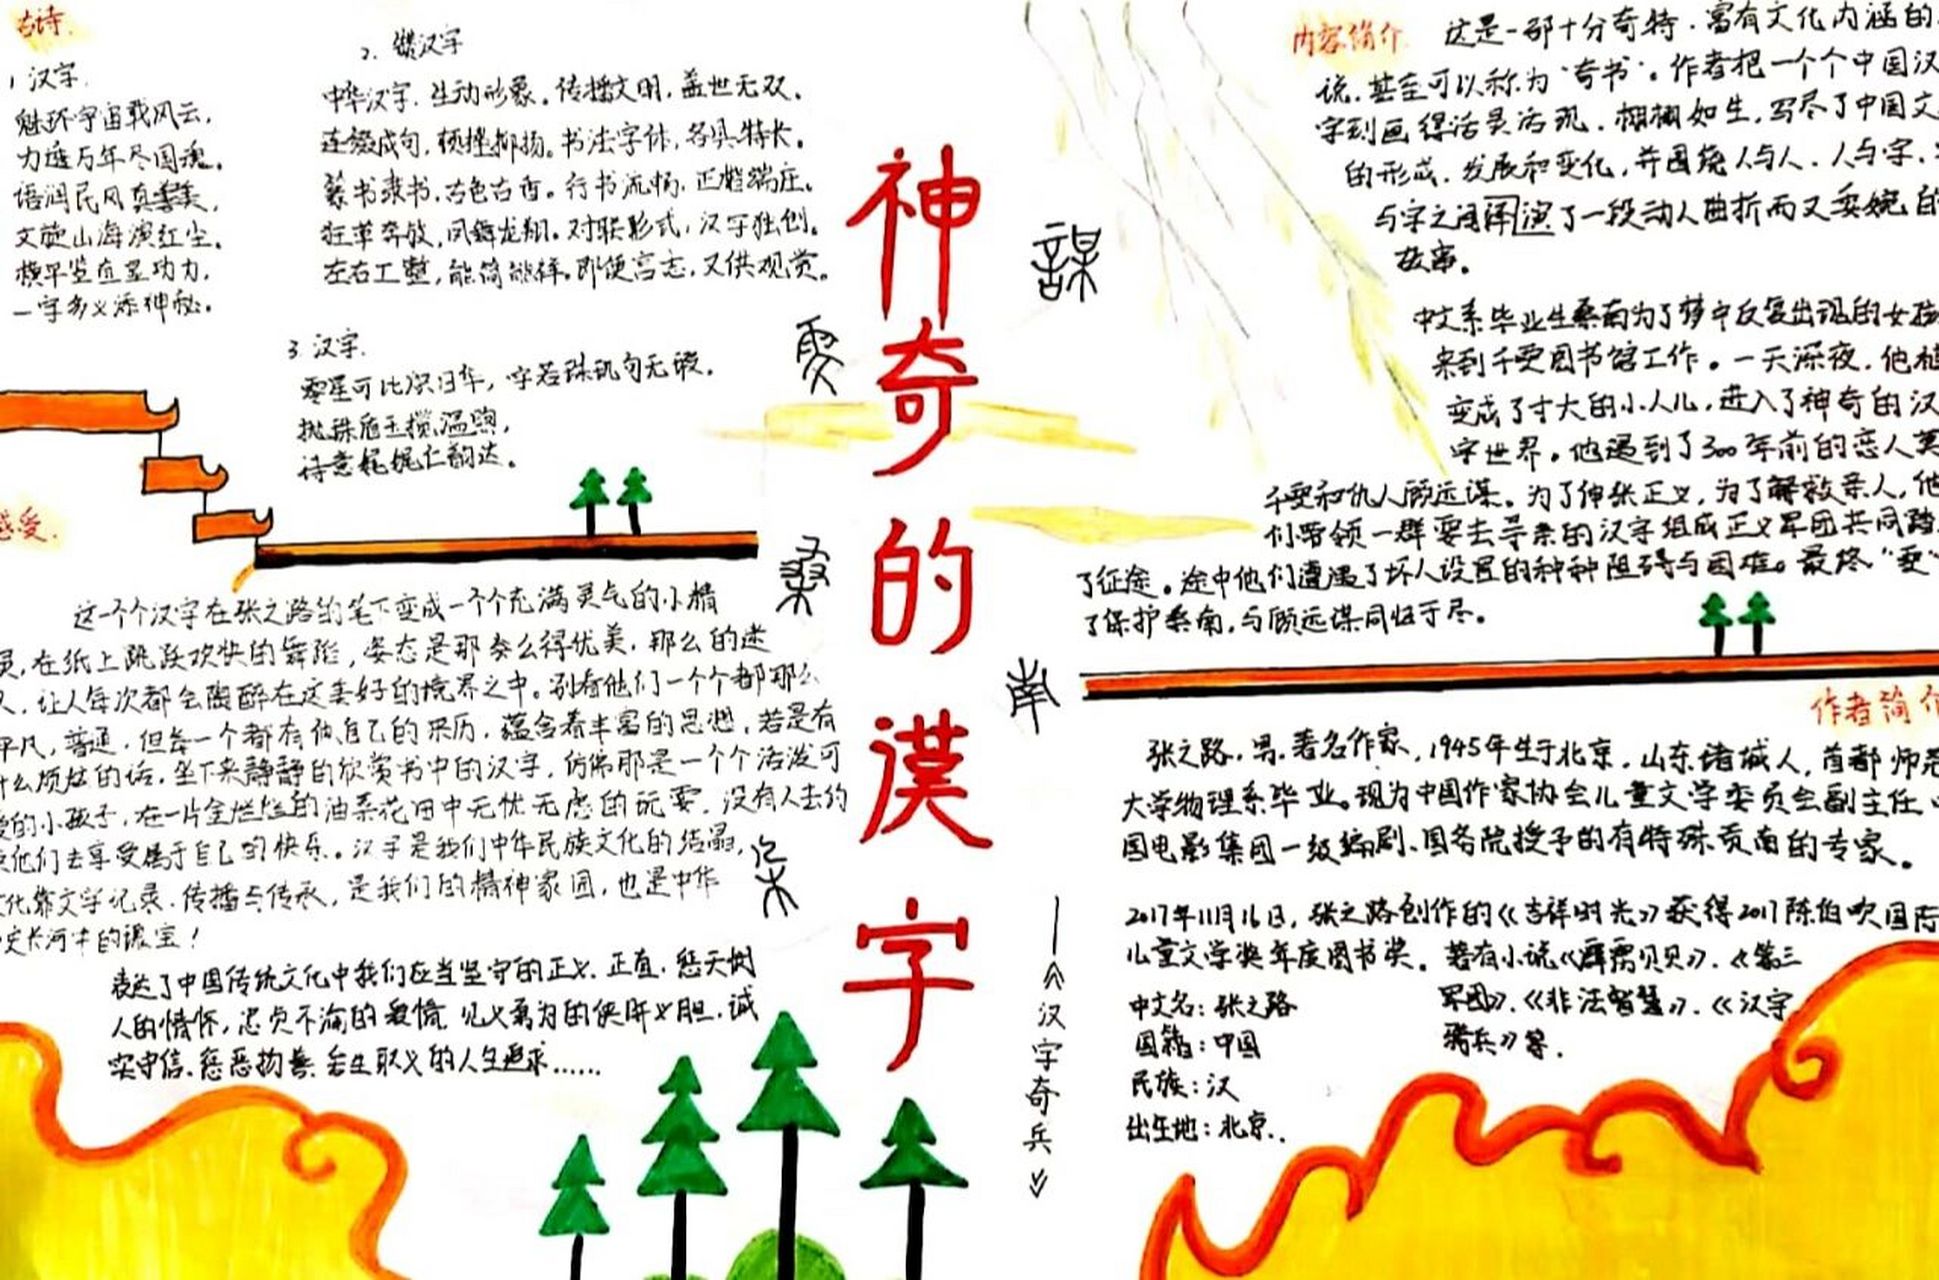 古诗.
1 汉字.
魅环宇宙载风云,
力造万年尽国魂。
语润民风真善美,
文旋山海滨红尘。
横平竖直显功力,
一字多义添神秘。
2. 赞汉字
中华汉字. 生动形象. 传播文明, 盖世无双.
连缀成句, 顿挫抑扬。书法字体, 各具特长.
篆书隶书, 古色古香。行书流畅, 正楷端庄.
狂草奔放, 凤舞龙翔. 对联形式, 汉字独创.
左右工整, 能简能祥. 即便言志, 又供观赏。
3. 汉字.
零星可比, 字若珠玑句无瑕.
诗意娓娓仁韵达.
感受.
这一个个汉字在张之路的笔下变成一个个充满灵气的小精
灵, 在纸上跳跃欢快的舞蹈, 姿态是那么得优美, 那么的迷
人, 让人每次都会陶醉在这美好的境界之中。别看他们一个个都那么
平凡, 普通, 但每一个都有他自己的来历, 蕴含着丰富的思想, 若是有
什么烦扰的话, 坐下来静静的欣赏书中的汉字, 仿佛那是一个个活泼可
爱的小孩子, 在一片金灿灿的油菜花田中无忧无虑的玩耍. 没有人去约
束他们去享受属于自己的快乐。汉字是我们中华民族文化的结晶,
文化靠文字记录. 传播与传承, 是我们的精神家园, 也是中华
史长河中的瑰宝!
表达了中国传统文化中我们应当坚守的正义. 正直. 悲天悯
人的情怀, 忠贞不渝的爱情 见义勇为的侠肝义胆. 诚
实守信. 惩恶扬善. 舍生取义的人生追求......
神奇的漢字
謀
雯
桑
南
—《汉字奇兵》
内容简介 这是一部十分奇特. 富有文化内涵的
说, 甚至可以称为"奇书"。作者把一个个中国汉
字刻画得活灵活现. 栩栩如生, 写尽了中国文
的形成. 发展和变化, 并围绕人与人. 人与字.
与字之间译演了一段动人曲折而又委婉的
故事.
中文系毕业生桑南为了梦中反复出现的女孩
来到千雯图书馆工作。一天深夜, 他被
变成了寸大的小人儿, 进入了神奇的汉
字世界。他遇到了300年前的恋人莫
千雯和仇人顾远谋。为了伸张正义, 为了解救亲人, 他
们带领一群要去寻亲的汉字组成正义军团共同踏
了征途。途中他们遭遇了坏人设置的种种阻碍与困难。最终"雯"
了保护桑南, 与顾远谋同归于尽。
作者简介
张之路. 男. 著名作家, 1945年生于北京. 山东诸城人, 首都师范
大学物理系毕业。现为中国作家协会儿童文学委员会副主任.
国电影集团一级编剧. 国务院授予的有特殊贡南的专家。
2017年11月16日, 张之路创作的《吉祥时光》获得2017陈伯吹国际
儿童文学奖年度图书奖。著有小说《霹雳贝贝》. 《第三
军团》. 《非法智慧》. 《汉字
奇兵》等.
中文名: 张之路
国籍: 中国
民族: 汉
出生地: 北京.